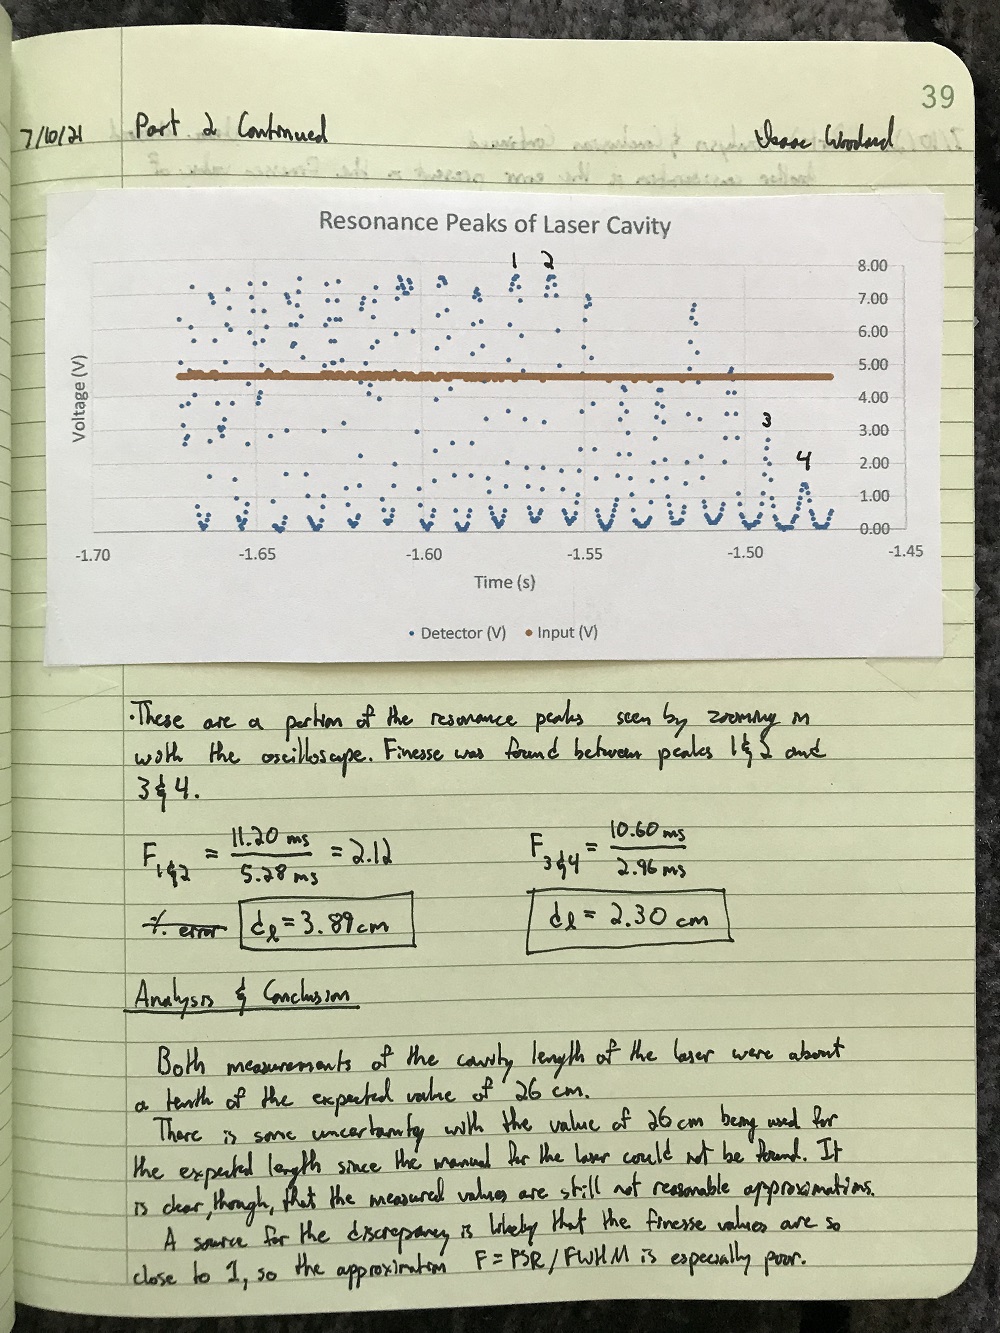 39
7/10/21 Part 2 Continued Isaac Woodard
Resonance Peaks of Laser Cavity
1 2
8.00
7.00
6.00
5.00
4.00
3.00
2.00
1.00
0.00
3
4
Voltage (V)
-1.70 -1.65 -1.60 -1.55 -1.50 -1.45
Time (s)
• Detector (V) • Input (V)
·These are a portion of the resonance peaks seen by zooming in
with the oscilloscope. Finesse was found between peaks 1&2 and
3&4.
F1&2 = 11.20 ms / 5.28 ms = 2.12 F3&4 = 10.60 ms / 2.96 ms
% error dℓ = 3.89 cm dℓ = 2.30 cm
Analysis & Conclusion
Both measurements of the cavity length of the laser were about
a tenth of the expected value of 26 cm.
There is some uncertainty with the value of 26 cm being used for
the expected length since the manual for the laser could not be found. It
is clear, though, that the measured values are still not reasonable approximations.
A source for the discrepancy is likely that the finesse values are so
close to 1, so the approximation F = FSR / FWHM is especially poor.